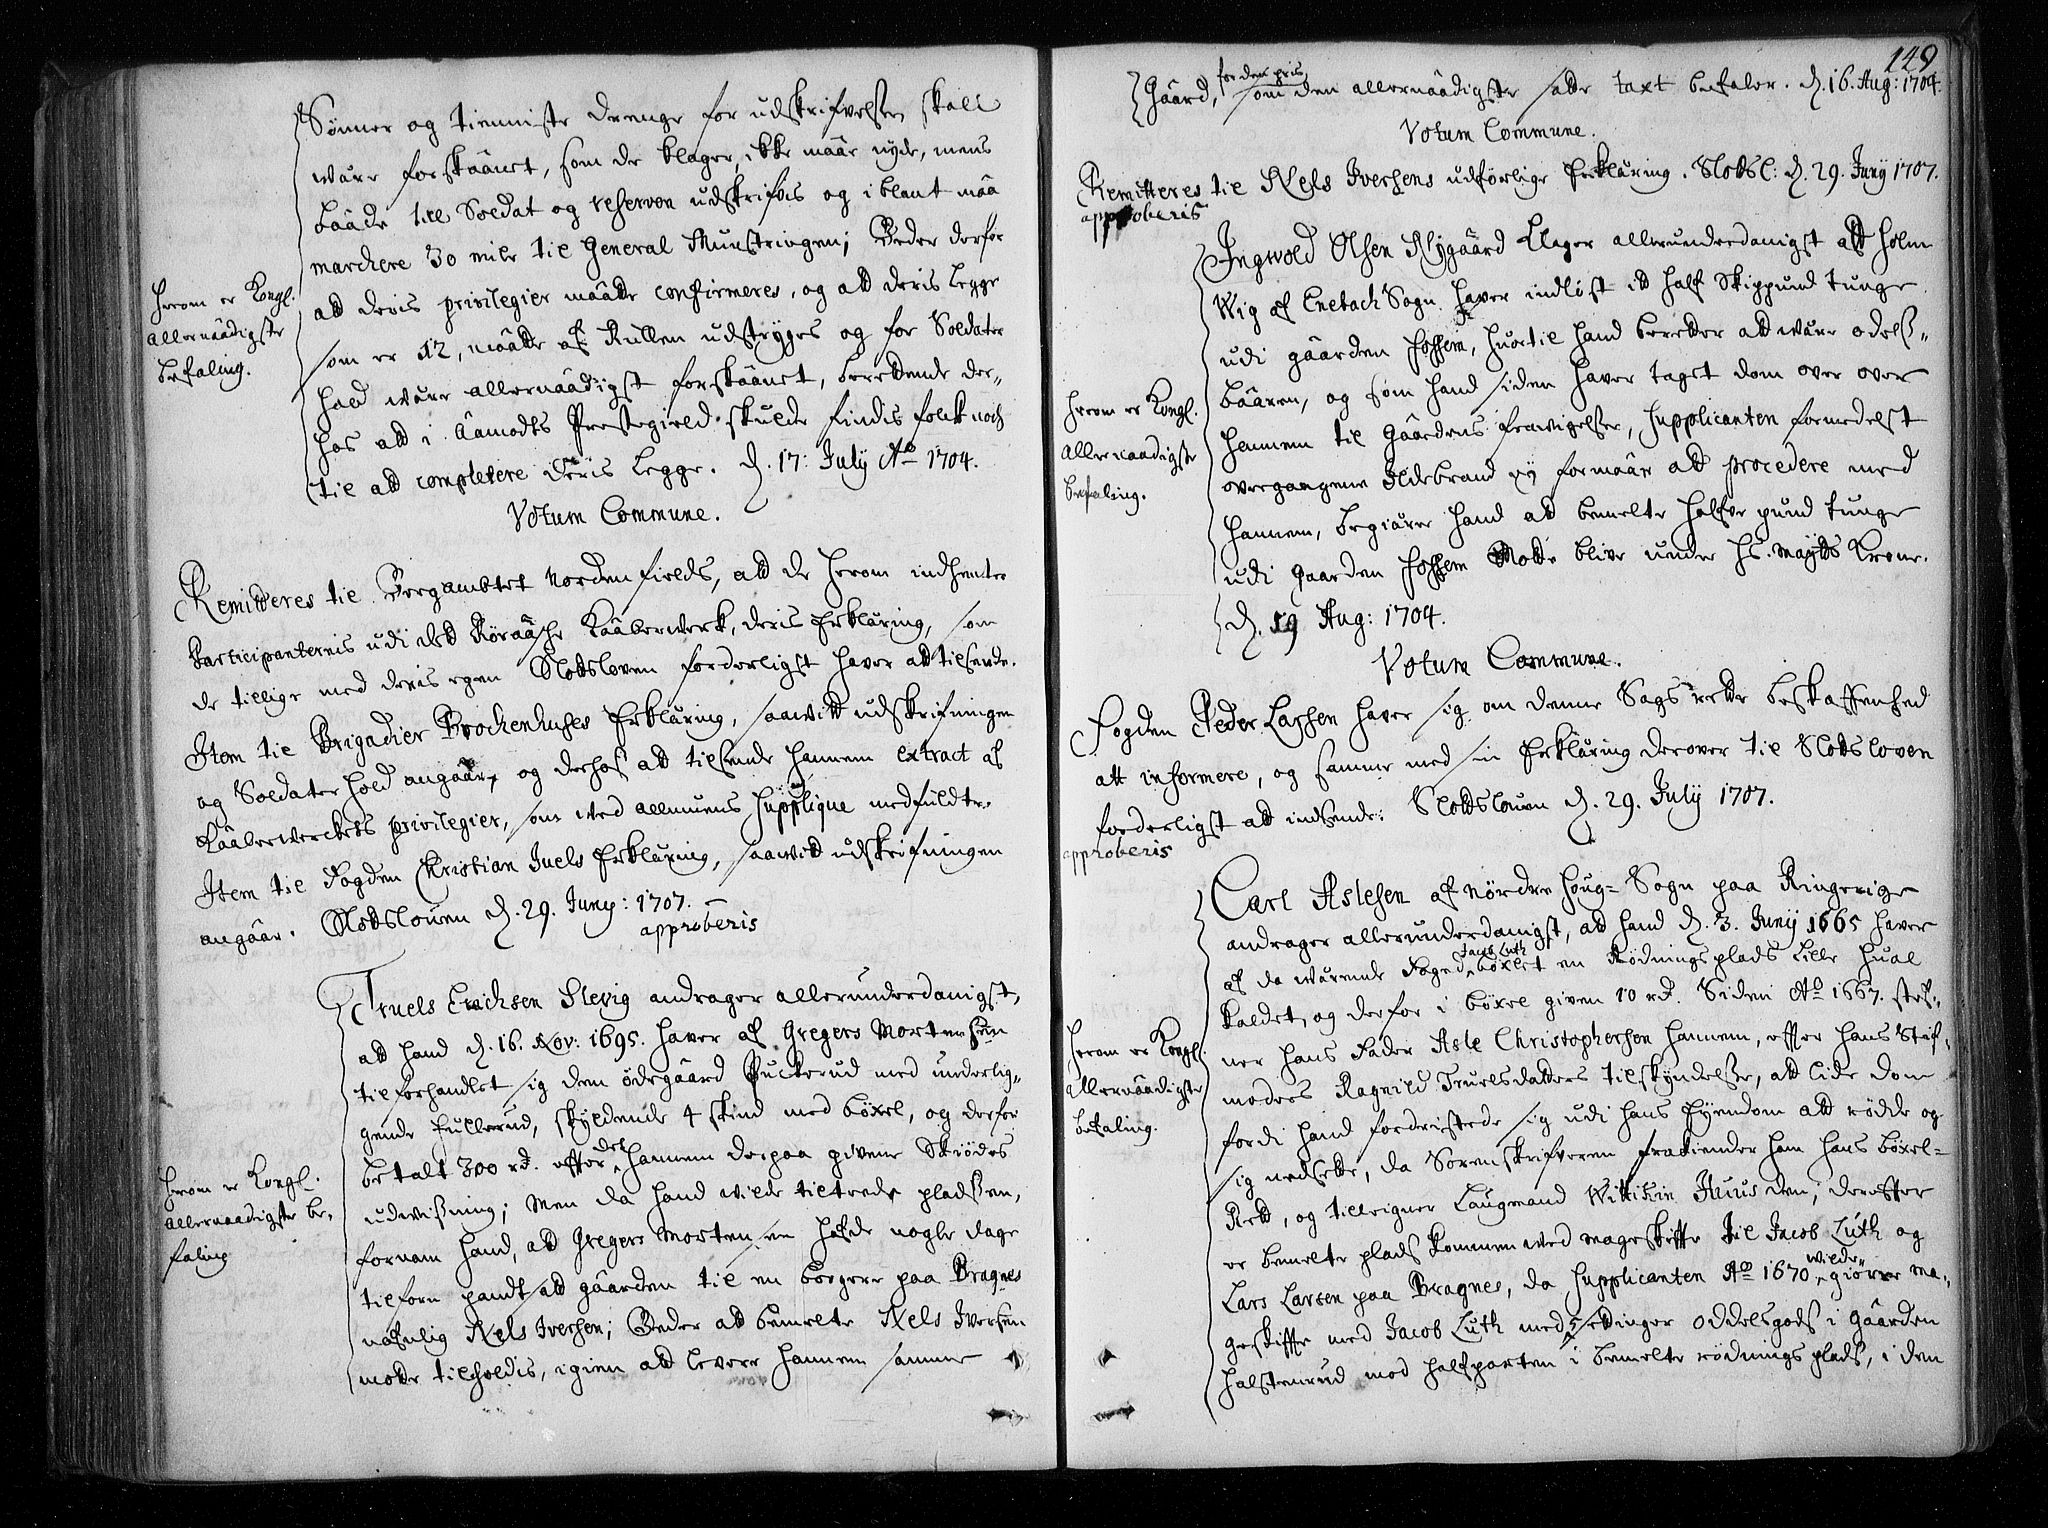 Sønner og tienniste drenge for udskrifvelsen skall
være forskaanet, som de klager, ikke maae nyde, mens
baade till Soldat og reserven udskrifvis og iblant maa
marchere 30 mile til General Munstringen; Beder derfor
att deris privilegier maatte confirmeres, og att deris Legge
som er 12, maatte af Rullen udstryges og for Soldater
hold være allernaadigst forskaanet, berettende der,,
hos att i Aamodts Prestegield skulde findis folck noch
til att completere deris Legge. d. 17: July Ao 1704.
Herom er Kongl.
allernaadigste
befaling.
Votum Commune.
Remitteres til Bergambtet Nordenfields, att de herom indhenter
Participanternis udi det Røraasche Kaaberwerk, deris Erklæring, som
de tillige med deris egen Slotsloven forderligst haver att tilsende.
Item til Brigadier Brochenhuses Erklæring, saawitt udskrifningen
og Soldater hold angaar, og derhos att tilsende hannem extract af
Kaaberwerckets privilegier, som med allmuens Supplique medfulte.
Item til Fogden Christian Juels Erklæring, saawitt udskrifningen
angaar. Slotslouen d. 29. Juny: 1707.
approberis
Truels Erichsen Slevig andrager allerunderdanigst,
att hand d. 16. Nov: 1695. haver af Gregers Mortensen
tilforhandlet sig den ødegaard Puckerud med underlig,,
gende Fullerud, skyldende 4 skind med bøxel, og derfor
betalt 300 rd. effter det hannem derpaa givene Skiødes
udwisning; Men da hand wilde tiltrede pladsen,
fornam hand, att Gregers Mortensen hafde nogle dage
tilforn pandtsatt gaarden til en borgere paa Bragnes
nafnlig Nels Iversen; Beder att bemelte Nels Iversen
motte tilholdis, igien att levere hannem samme
Herom er Kongl.
allernaadigste be,,
faling
149
Gaard, for den pris som den allernaadigste satte taxt befaler. d. 16. Aug: 1704.
Votum Commune.
Remitteres til Nels Iversens udførlige Erklæring. Slotsl: d. 29. Juny 1707.
approberis
Ingwold Olsen Nygaard klager allerunderdanigst att Holm
Wig af Enebach Sogn haver indløst it half Skippund tunge
udi gaarden Fossem, huortil hand beretter att være odels,,
baaren, og som hand siden haver taget dom over over
hennem til Gaardens frawigelse, Supplicanten formedelst
overgangene Ildebrand ey formaar att procedere med
hannem, begiærer hand att bemelte halfve pund tunge
udi Gaarden Fossem Motte blive under Hs. Mayts Krone.
d. 19 Aug: 1704.
Herom er Kongl.
allernaadigste
befaling.
Votum Commune.
Fogden Peder Lassen haver sig om denne Sags rette beskaffenhed
att informere, og samme med sin Erklæring derover til Slotsloven
forderligst att indsende. Slotslouen d. 29. July 1707.
approberis
Carl Aslesen af Nørdre Houg-Sogn paa Ringerige
andrager allerunderdanigst, att hand d. 3. Juny 1665 haver
af da wærende Foged Jacob Luth bøxlet en Rødnings plads Lille Hual
kaldet, og derfor i bøxel given 10 rd. Siden Ao 1667. stef,,
ner hans Fader Asle Christophersen hannem, effter hans Stif,,
moders Ragnild Truelsdatters tilskyndelse, att lide dom
fordi hand fordristede sig udi hans Eyendom att rødde og
sig nedsette, da Sorenskrifveren frakiender ham hans bøxel-
Rett, og tilleigner Laugmand Wittikin Huus den, dereffter
er bemelte plads kommen ved mageskiffte til Jacob Luth og
Lars Larsen paa Bragnes, da Supplicanten Ao 1670 wilde giøre ma,,
geskiffte med Jacob Luth med 5 settinger Oddelsgods i gaarden
Halstenrud mod halfparten i bemelte rødnings plads, i den
Herom er Kongl.
allernaadigste
befaling.